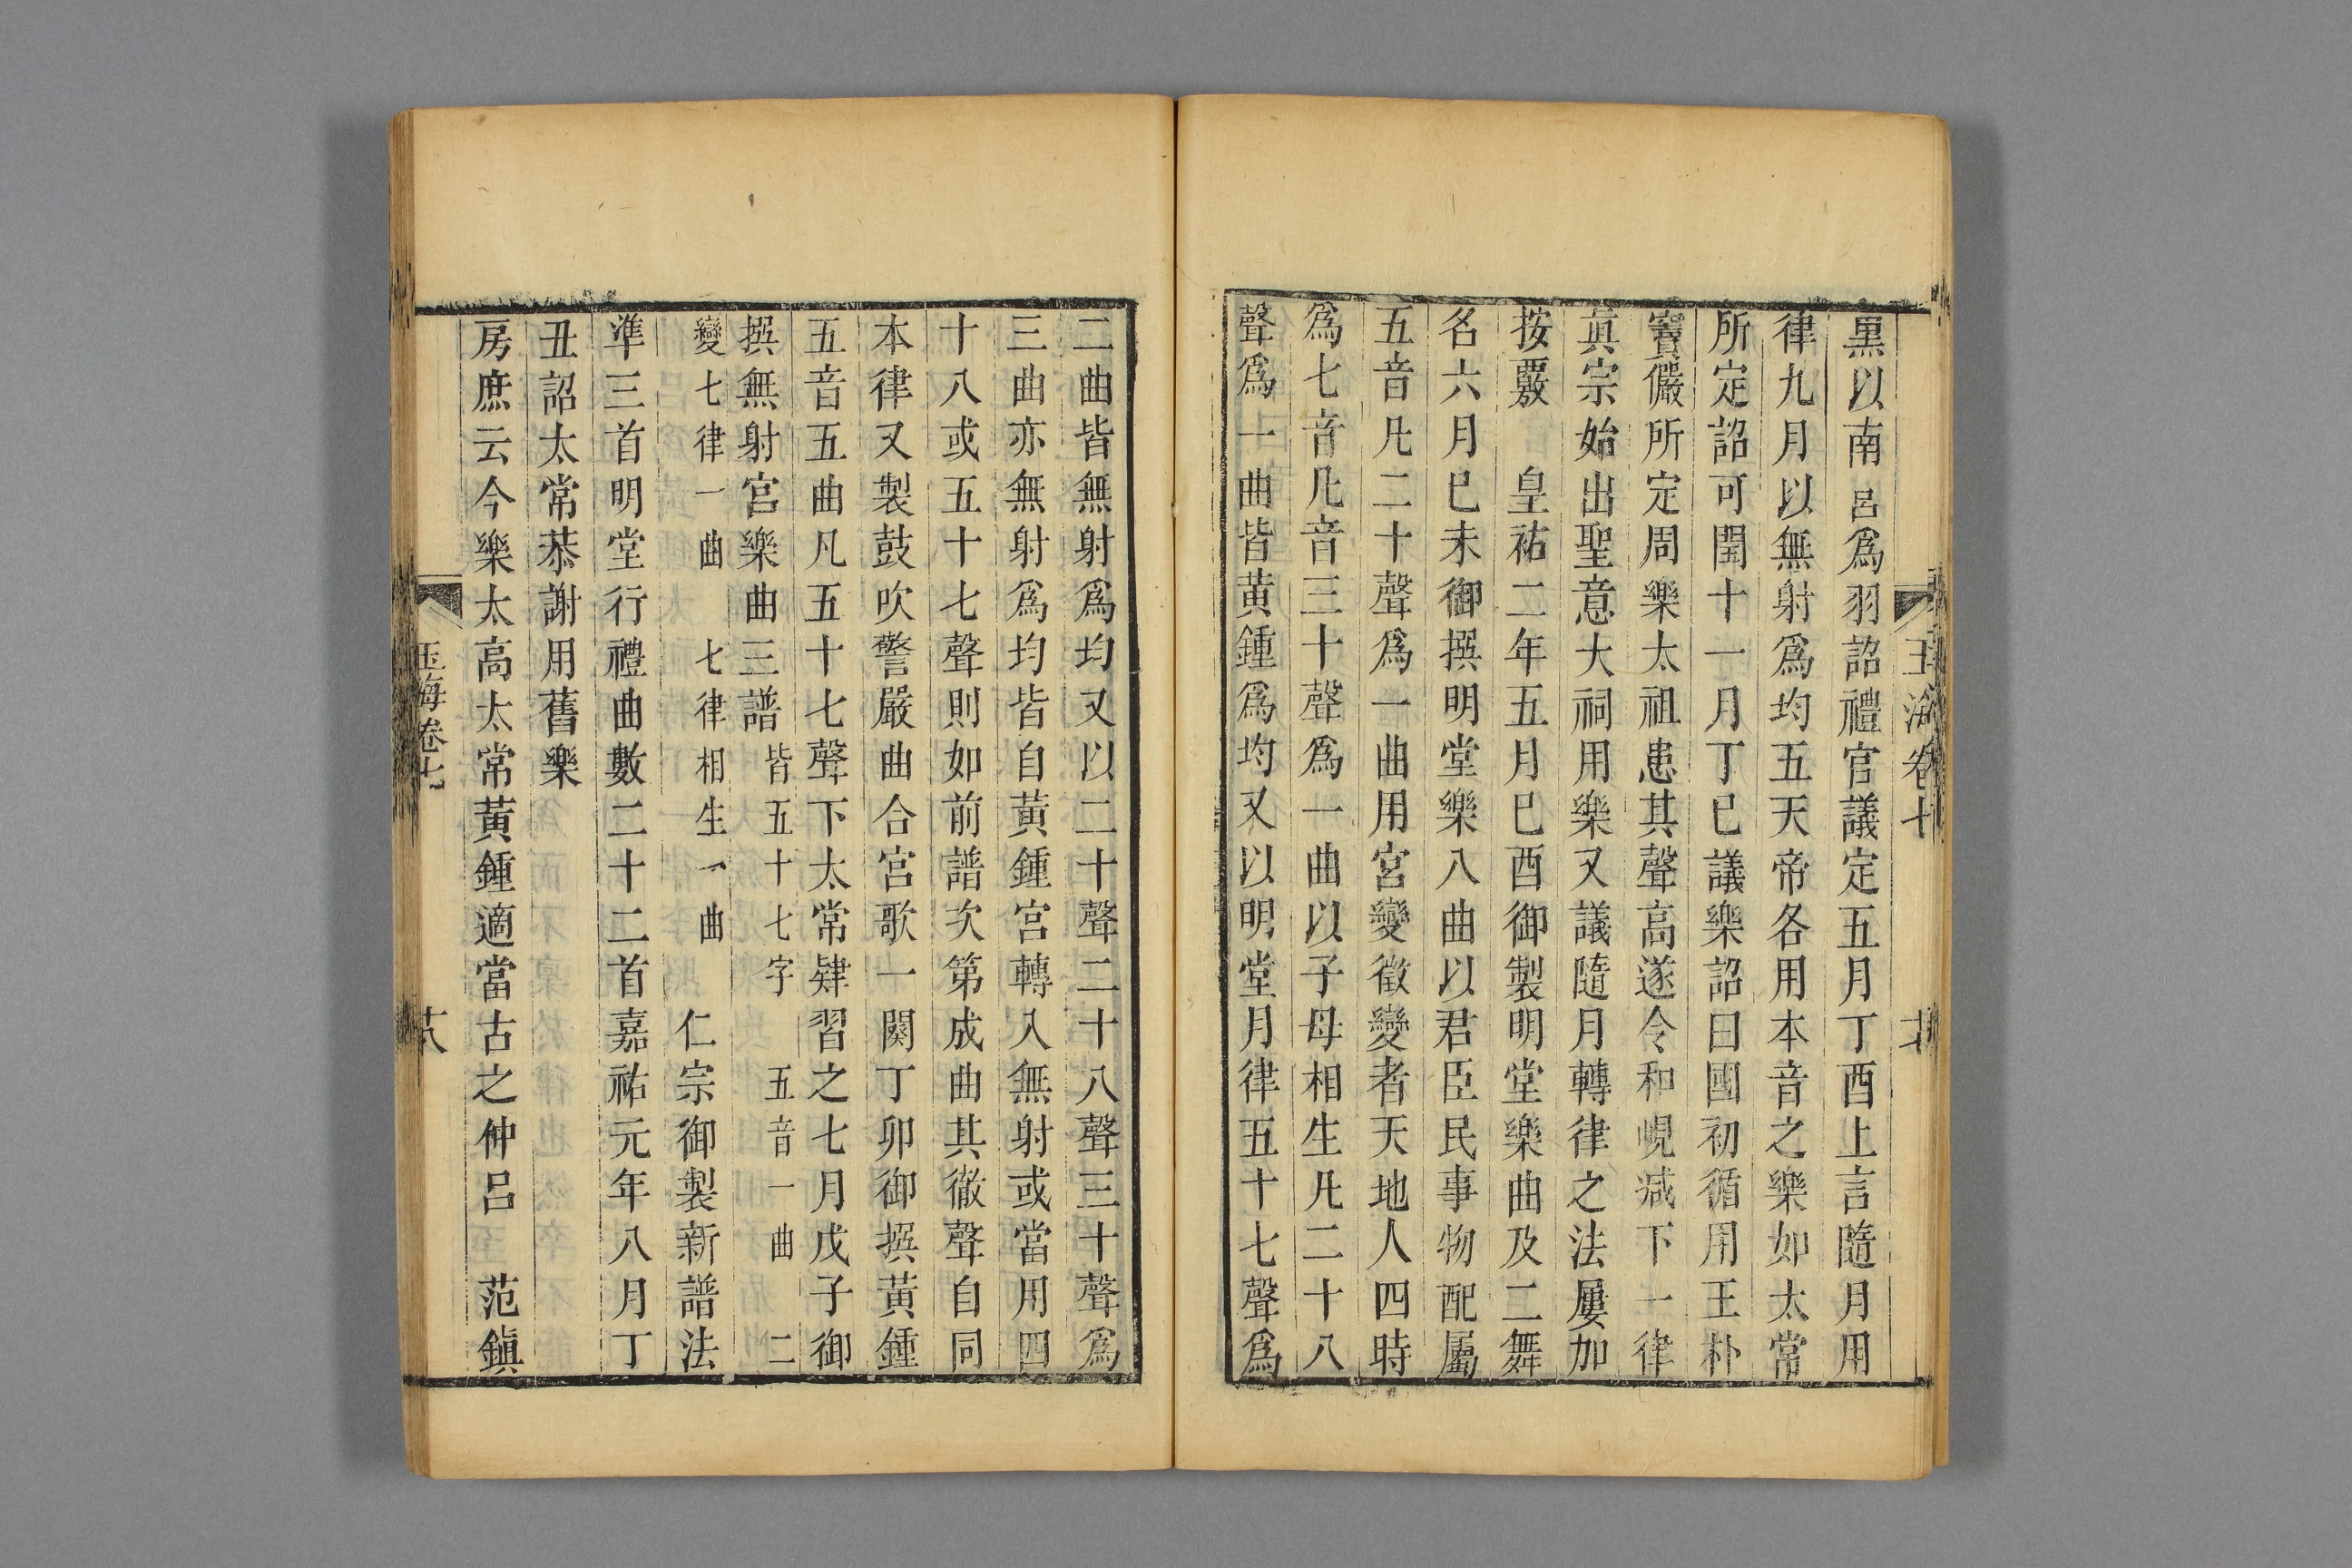 黑以南呂爲羽詔禮官議定五月丁酉上言隨月用
律九月以無射爲均五天帝各用本音之樂如太常
所定詔可閏十一月丁巳議樂詔曰國初循用王朴
竇儼所定周樂太祖患其聲高遂令和峴减下一律
眞宗始出聖意大祠用樂又議隨月轉律之法屢加
按覈　皇祐二年五月巳酉御製明堂樂曲及二舞
名六月巳未御撰明堂樂八曲以君臣民事物配屬
五音凡二十聲爲一曲用宮變徵變者天地人四時
爲七音凡音三十聲爲一曲以子母相生凡二十八
聲爲一曲皆黃鍾爲均又以明堂月律五十七聲爲
二曲皆無射爲均又以二十聲二十八聲三十聲爲
三曲亦無射爲均皆自黃鍾宮轉入無射或當用四
十八或五十七聲則如前譜次第成曲其徹聲自同
本律又製鼓吹警嚴曲合宮歌一闋丁卯御撰黃鍾
五音五曲凡五十七聲下太常肄習之七月戊子御
撰無射宮樂曲三譜皆五十七字　五音一曲　二
變七律一曲　七律相生一曲　仁宗御製新譜法
準三首明堂行禮曲數二十二首嘉祐元年八月丁
丑詔太常恭謝用舊樂
房庶云今樂太高太常黃鍾適當古之仲呂　范鎮
玉海卷七
十八